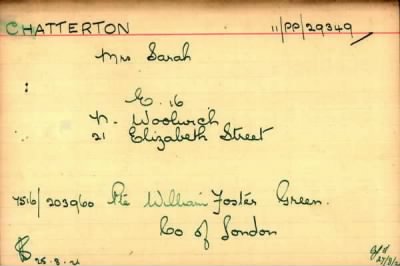 CHATTERTON 11/PP/29349
Mrs Sarah
E. 16
N. Woolwich
21 Elizabeth Street
7516/203960 Pte William Foster Green.
Co of London
25.8.21